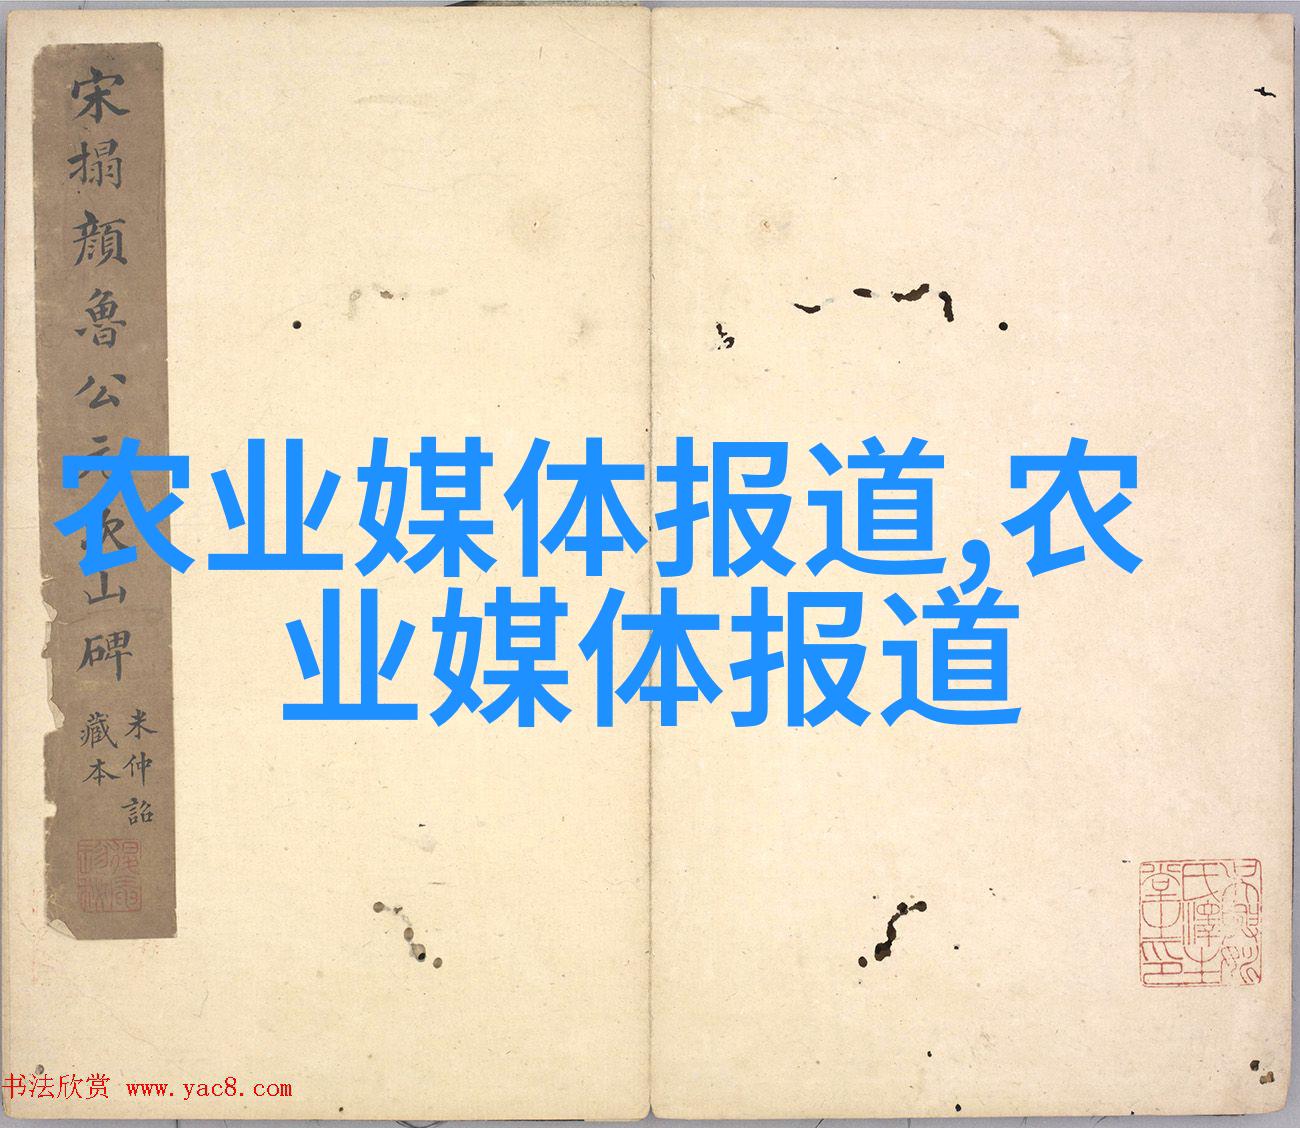 宋搨顏魯公元次山碑
米仲詔
藏本
农业媒体报道,农
业媒体报道
书法欣赏 www.yac8.com